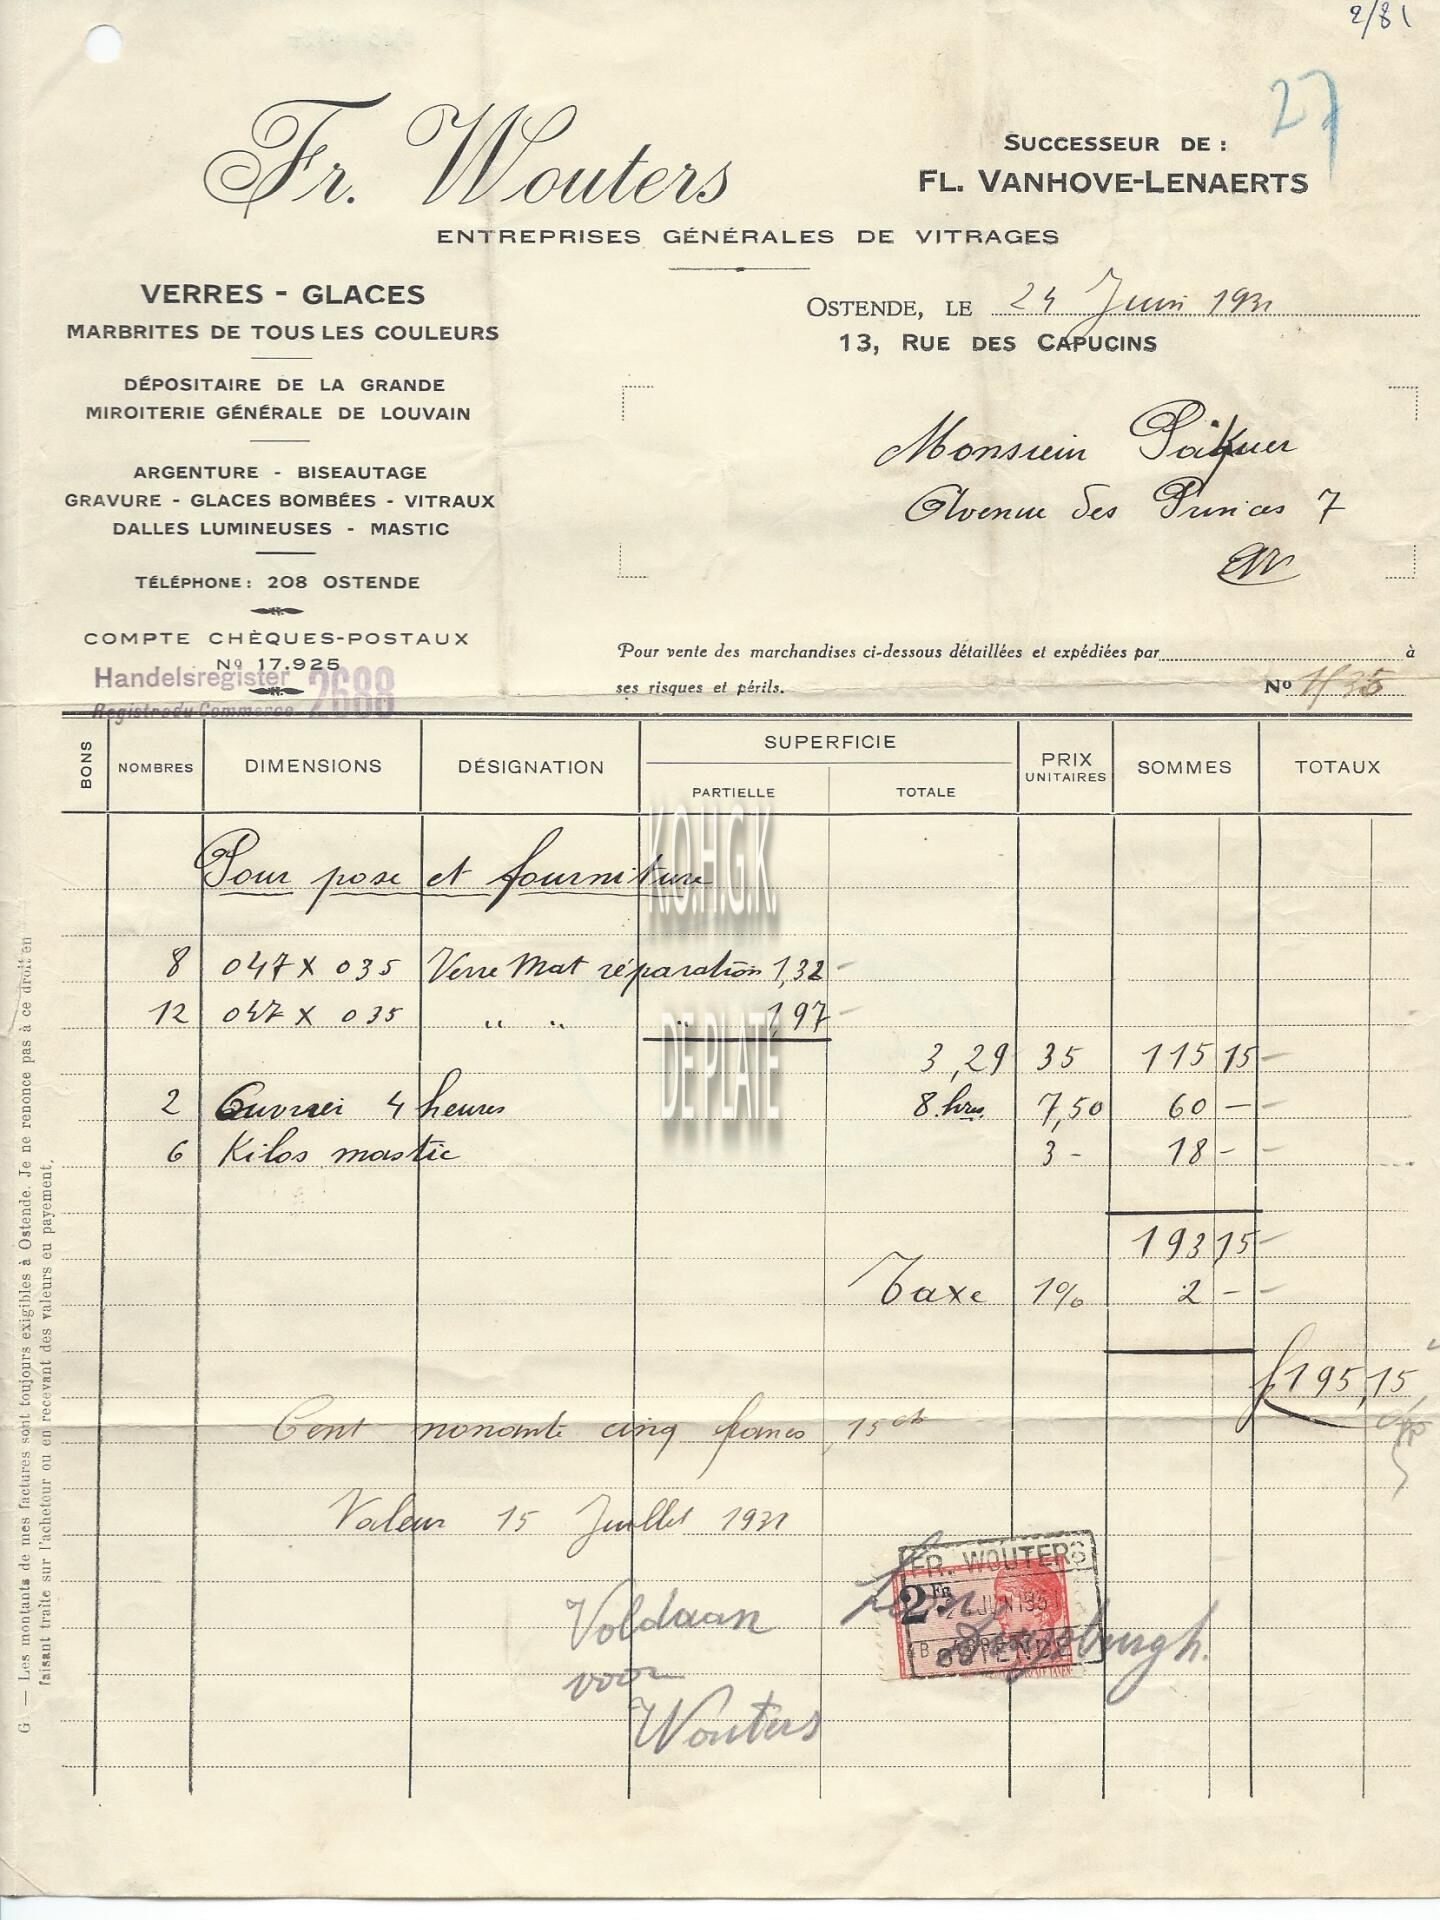 2/81
27
Fr. Wouters
SUCCESSEUR DE :
FL. VANHOVE-LENAERTS
ENTREPRISES GÉNÉRALES DE VITRAGES
VERRES - GLACES
MARBRITES DE TOUS LES COULEURS
DÉPOSITAIRE DE LA GRANDE
MIROITERIE GÉNÉRALE DE LOUVAIN
ARGENTURE - BISEAUTAGE
GRAVURE - GLACES BOMBÉES - VITRAUX
DALLES LUMINEUSES - MASTIC
TÉLÉPHONE : 208 OSTENDE
COMPTE CHÈQUES-POSTAUX
No 17.925
Handelsregister 2688
Registre du Commerce
OSTENDE, LE 24 Juin 1931
13, RUE DES CAPUCINS
Monsieur
Avenue des Princes 7
EV
Pour vente des marchandises ci-dessous détaillées et expédiées par à
ses risques et périls.
No
BONS NOMBRES DIMENSIONS DÉSIGNATION SUPERFICIE PRIX UNITAIRES SOMMES TOTAUX
PARTIELLE TOTALE
Pour pose et fourniture
8 047 X 035 Verre Mat réparation 1,32
12 047 X 035 " " " 1,97
3,29 35 115 15
2 Ouvrier 4 heures 8 hrs. 7,50 60 -
6 Kilos mastic 3 - 18 -
193 15
Taxe 1% 2 -
f 195,15
Cent nonante cinq francs 15 ct
Valeur 15 Juillet 1931
Voldaan
voor
Wouters
FR. WOUTERS
2 Fr
24 JUN 1931
OSTENDE
K.O.H.G.K.
DE PLATE
G. — Les montants de mes factures sont toujours exigibles à Ostende. Je ne renonce pas à ce droit en
faisant traite sur l'acheteur ou en recevant des valeurs en payement.